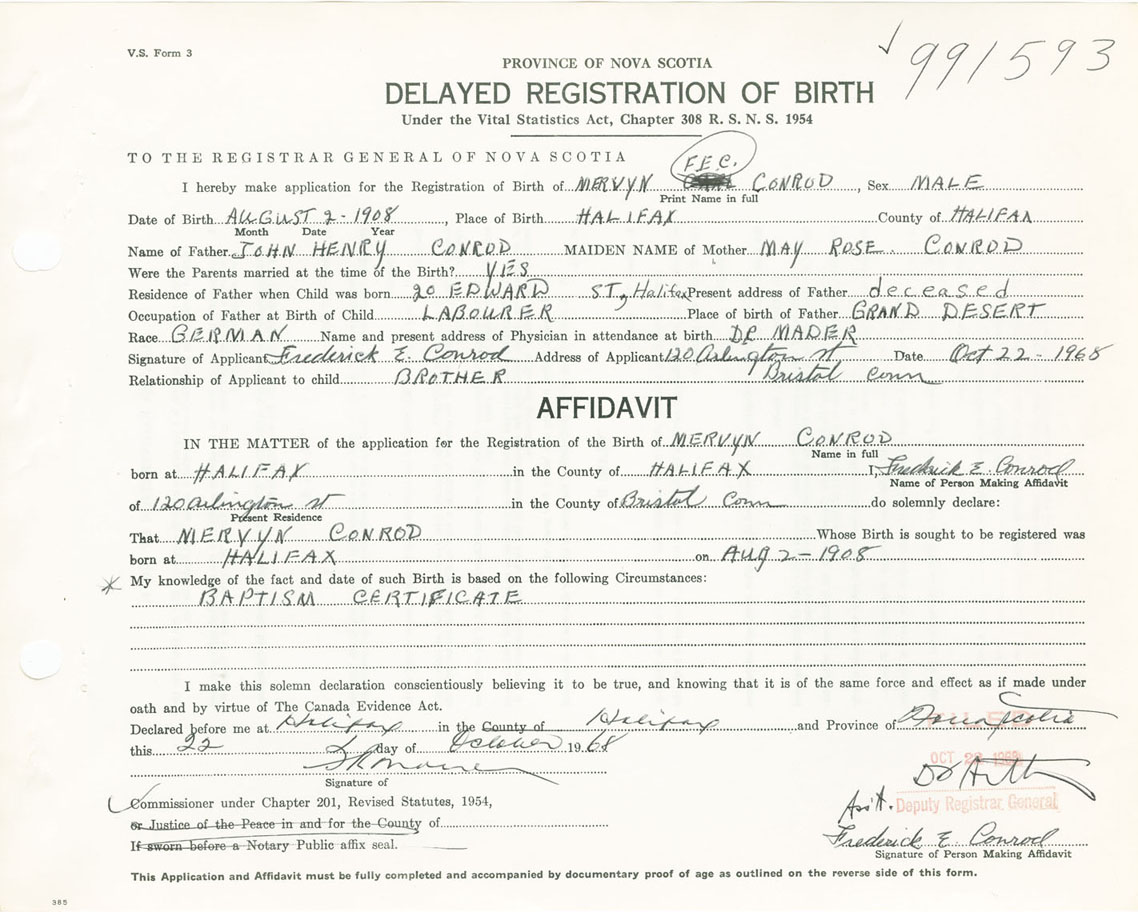 V.S. Form 3
991593
PROVINCE OF NOVA SCOTIA
DELAYED REGISTRATION OF BIRTH
Under the Vital Statistics Act, Chapter 308 R. S. N. S. 1954
TO THE REGISTRAR GENERAL OF NOVA SCOTIA
F.E.C.
I hereby make application for the Registration of Birth of MERVYN CONROD, Sex MALE
Print Name in full
Date of Birth AUGUST 2 - 1908, Place of Birth HALIFAX County of HALIFAX
Month Date Year
Name of Father JOHN HENRY CONROD MAIDEN NAME of Mother MAY ROSE. CONROD
Were the Parents married at the time of the Birth? YES
Residence of Father when Child was born 20 EDWARD ST, Halifax Present address of Father deceased
Occupation of Father at Birth of Child LABOURER Place of birth of Father GRAND DESERT
Race GERMAN Name and present address of Physician in attendance at birth DR MADER
Signature of Applicant Frederick E. Conrod Address of Applicant 120 Arlington St Date Oct 22 - 1968
Relationship of Applicant to child BROTHER Bristol Conn
AFFIDAVIT
IN THE MATTER of the application for the Registration of the Birth of MERVYN CONROD
Name in full
born at HALIFAX in the County of HALIFAX I, Fredrick E. Conrod
Name of Person Making Affidavit
of 120 Arlington st in the County of Bristol Conn do solemnly declare:
Present Residence
That MERVYN CONROD Whose Birth is sought to be registered was
born at HALIFAX on AUG 2 - 1908
My knowledge of the fact and date of such Birth is based on the following Circumstances:
BAPTISM CERTIFICATE
I make this solemn declaration conscientiously believing it to be true, and knowing that it is of the same force and effect as if made under
oath and by virtue of The Canada Evidence Act.
Declared before me at Halifax in the County of Halifax and Province of Nova Scotia
this 22 day of October 1968
OCT
Signature of
Commissioner under Chapter 201, Revised Statutes, 1954,
Ass't. Deputy Registrar General
or Justice of the Peace in and for the County of
Frederick E Conrod
If sworn before a Notary Public affix seal.
Signature of Person Making Affidavit
This Application and Affidavit must be fully completed and accompanied by documentary proof of age as outlined on the reverse side of this form.
385